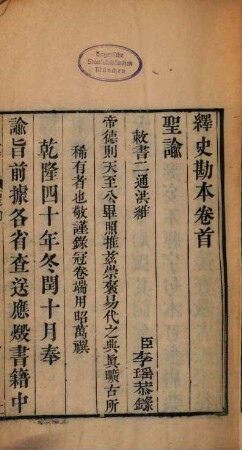 Bayerische
Staatsbibliothek
München
繹史勘本卷首
聖諭
臣李瑤恭錄
敕書二通洪維
帝德則天至公畢照推茲崇褒易代之典眞曠古所
稀有者也敬謹錄冠卷端用昭萬禩
乾隆四十年冬閏十月奉
諭旨前據各省查送應燬書籍中